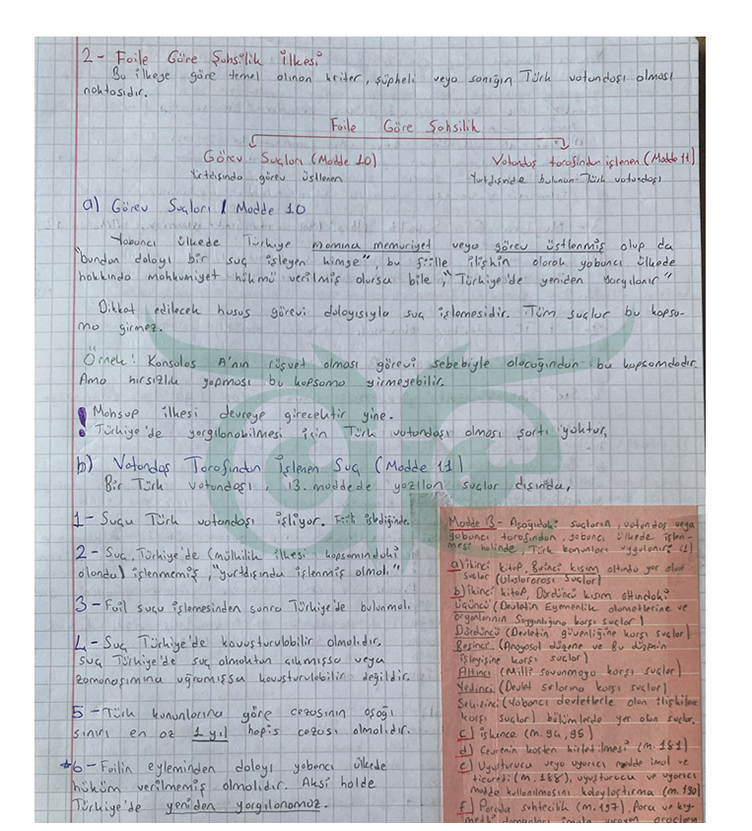 2- Faile Göre Şahsilik İlkesi
Bu ilkeye göre temel alınan kriter, şüpheli veya sanığın Türk vatandaşı olması
noktasıdır.
Faile Göre Şahsilik
Görev Suçları (Madde 10)
Yurtdışında görev üstlenen
Vatandaş tarafından işlenen (Madde 11)
Yurtdışında bulunan Türk vatandaşı
a) Görev Suçları / Madde 10
Yabancı ülkede Türkiye namına memuriyet veya görev üstlenmiş olup da
"bundan dolayı bir suç işleyen kimse", bu fiille ilişkin olarak yabancı ülkede
hakkında mahkumiyet hükmü verilmiş olursa bile, "Türkiye'de yeniden yargılanır"
Dikkat edilecek husus görevi dolayısıyla suç işlemesidir. Tüm suçlar bu kapsa-
ma girmez.
Örnek: Konsolos A'nın rüşvet alması görevi sebebiyle olacağından bu kapsamdadır.
Ama hırsızlık yapması bu kapsama girmeyebilir.
! Mahsup ilkesi devreye girecektir yine.
Türkiye'de yargılanabilmesi için Türk vatandaşı olması şartı yoktur.
b) Vatandaş Tarafından İşlenen Suç (Madde 11)
Bir Türk vatandaşı, 13. maddede yazılan suçlar dışında,
1- Suçu Türk vatandaşı işliyor. işlediğinde.
2- Suç, Türkiye'de (mülkilik ilkesi kapsamındaki
alanda) işlenmemiş, "yurtdışında işlenmiş olmalı."
3- Fail suçu işlemesinden sonra Türkiye'de bulunmalı.
4- Suç Türkiye'de kovuşturulabilir olmalıdır.
Suç Türkiye'de suç olmaktan çıkmışsa veya
zamanaşımına uğramışsa kovuşturulabilir değildir.
5- Türk kanunlarına göre cezasının aşağı
sınırı en az 1 yıl hapis cezası olmalıdır.
*6- Failin eyleminden dolayı yabancı ülkede
hüküm verilmemiş olmalıdır. Aksi halde
Türkiye'de yeniden yargılanamaz.
Madde 13- Aşağıdaki suçların, vatandaş veya
yabancı tarafından, yabancı ülkede işlen-
mesi halinde, Türk kanunları uygulanır: (1)
a) İkinci kitap, Birinci kısım altında yer alan
suçlar (Uluslararası Suçlar)
b) İkinci kitap, Dördüncü kısım altındaki
Üçüncü (Devletin Egemenlik alametlerine ve
organlarının Saygınlığına karşı suçlar)
Dördüncü (Devletin güvenliğine karşı suçlar)
Beşinci (Anayasal düzene ve Bu düzenin
işleyişine karşı suçlar)
Altıncı (Milli savunmaya karşı suçlar)
Yedinci (Devlet sırlarına karşı suçlar)
Sekizinci (Yabancı devletlerle olan ilişkilere
karşı suçlar) bölümlerde yer alan suçlar.
c) İşkence (m. 94, 95)
d) Çevrenin kasten kirletilmesi (m. 181)
e) Uyuşturucu veya uyarıcı madde imal ve
ticareti (m. 188), uyuşturucu ve uyarıcı
madde kullanılmasını kolaylaştırma (m. 190)
f) Parada sahtecilik (m. 197), Para ve kıy-